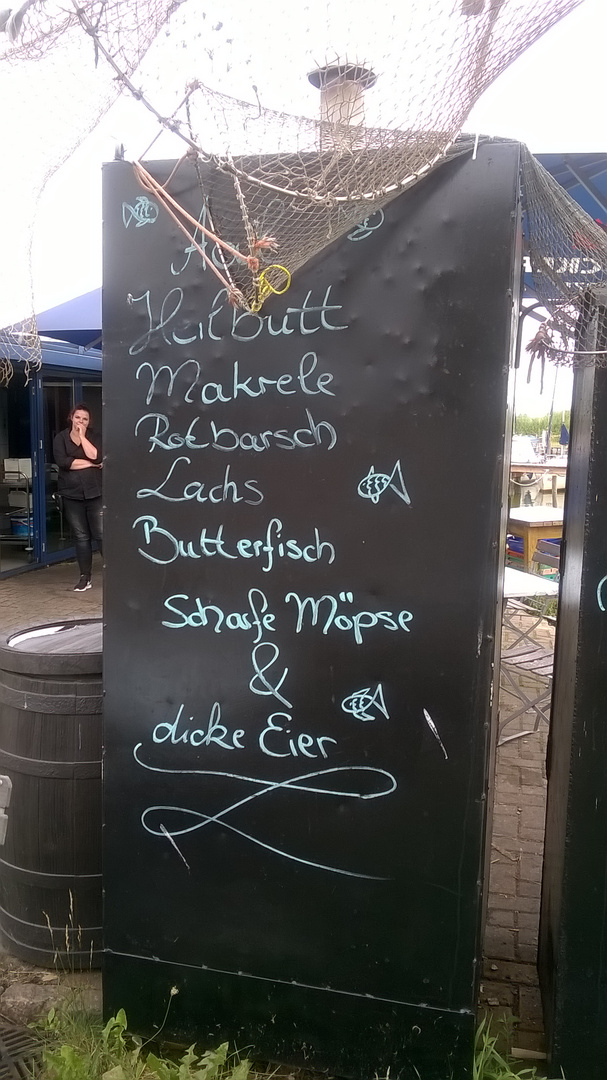 Heilbutt
Makrele
Rotbarsch
Lachs
Butterfisch
Scharfe Möpse
&
dicke Eier